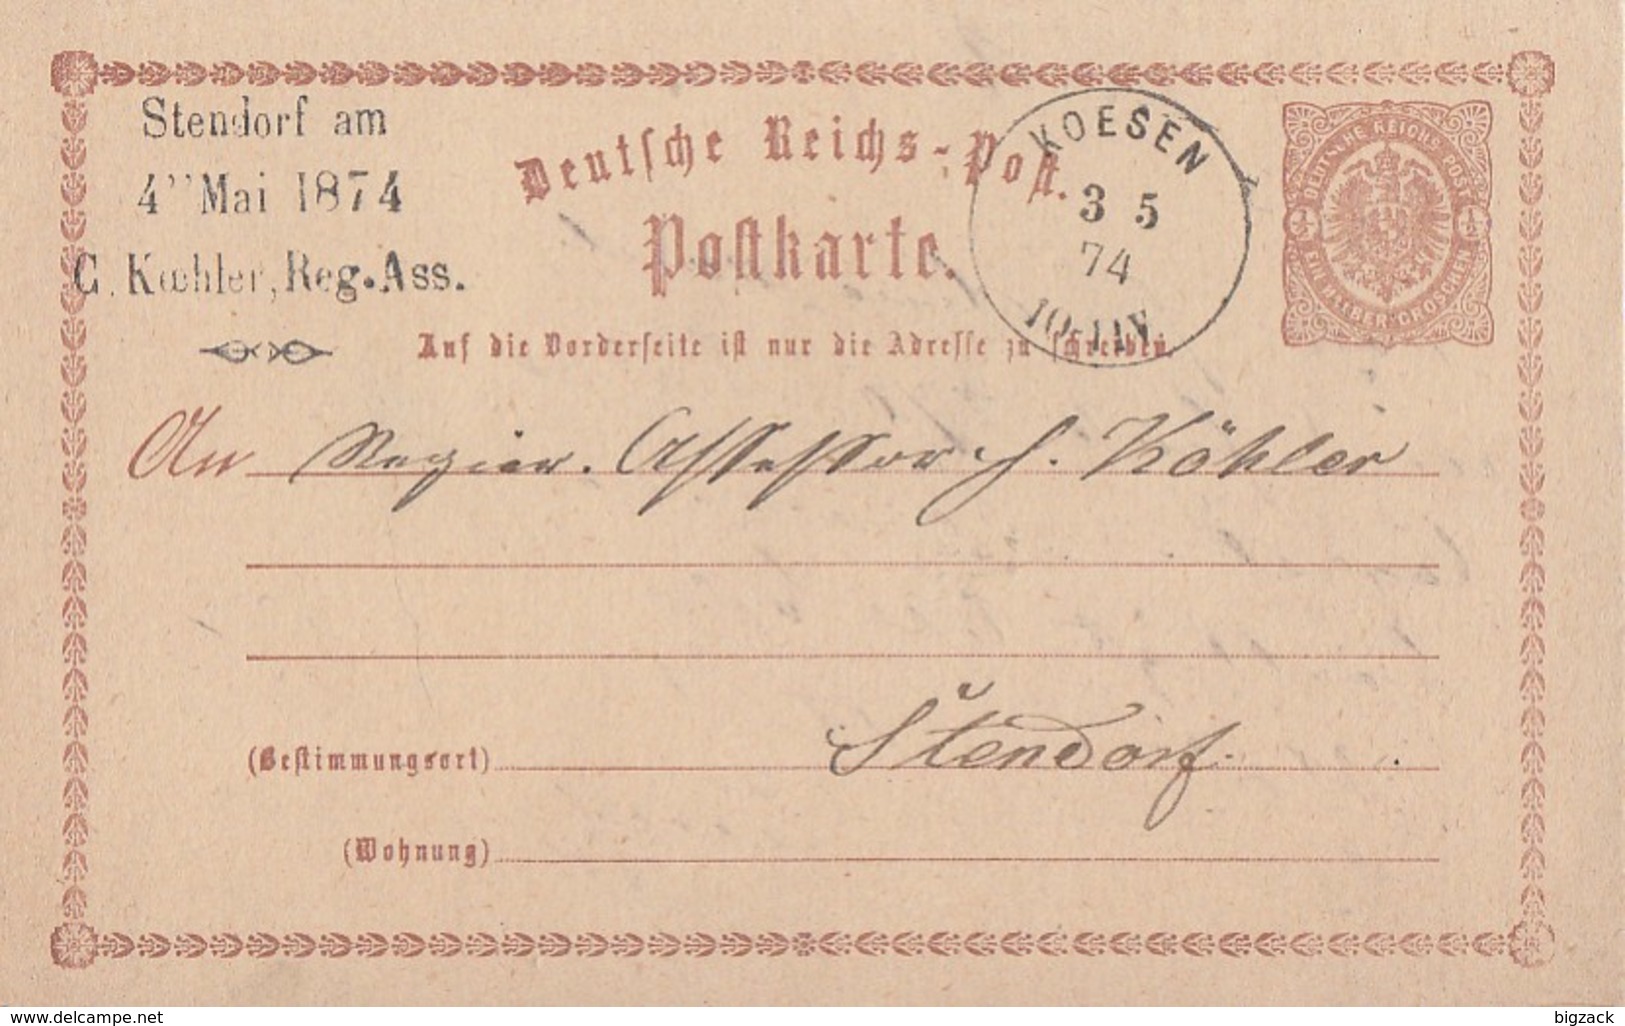 Stendorf am
4" Mai 1874
C. Kœhler, Reg. Ass.
Deutsche Reichs-Post.
Postkarte.
KOESEN
3 5
74
10-11V.
DEUTSCHE REICHS-POST
½ ½
EIN HALBER GROSCHEN
Auf die Vorderseite ist nur die Adresse zu schreiben.
An Regier. Assessor H. Köhler
Stendorf.
(Bestimmungsort)
(Wohnung)
www.delcampe.net
bigzack